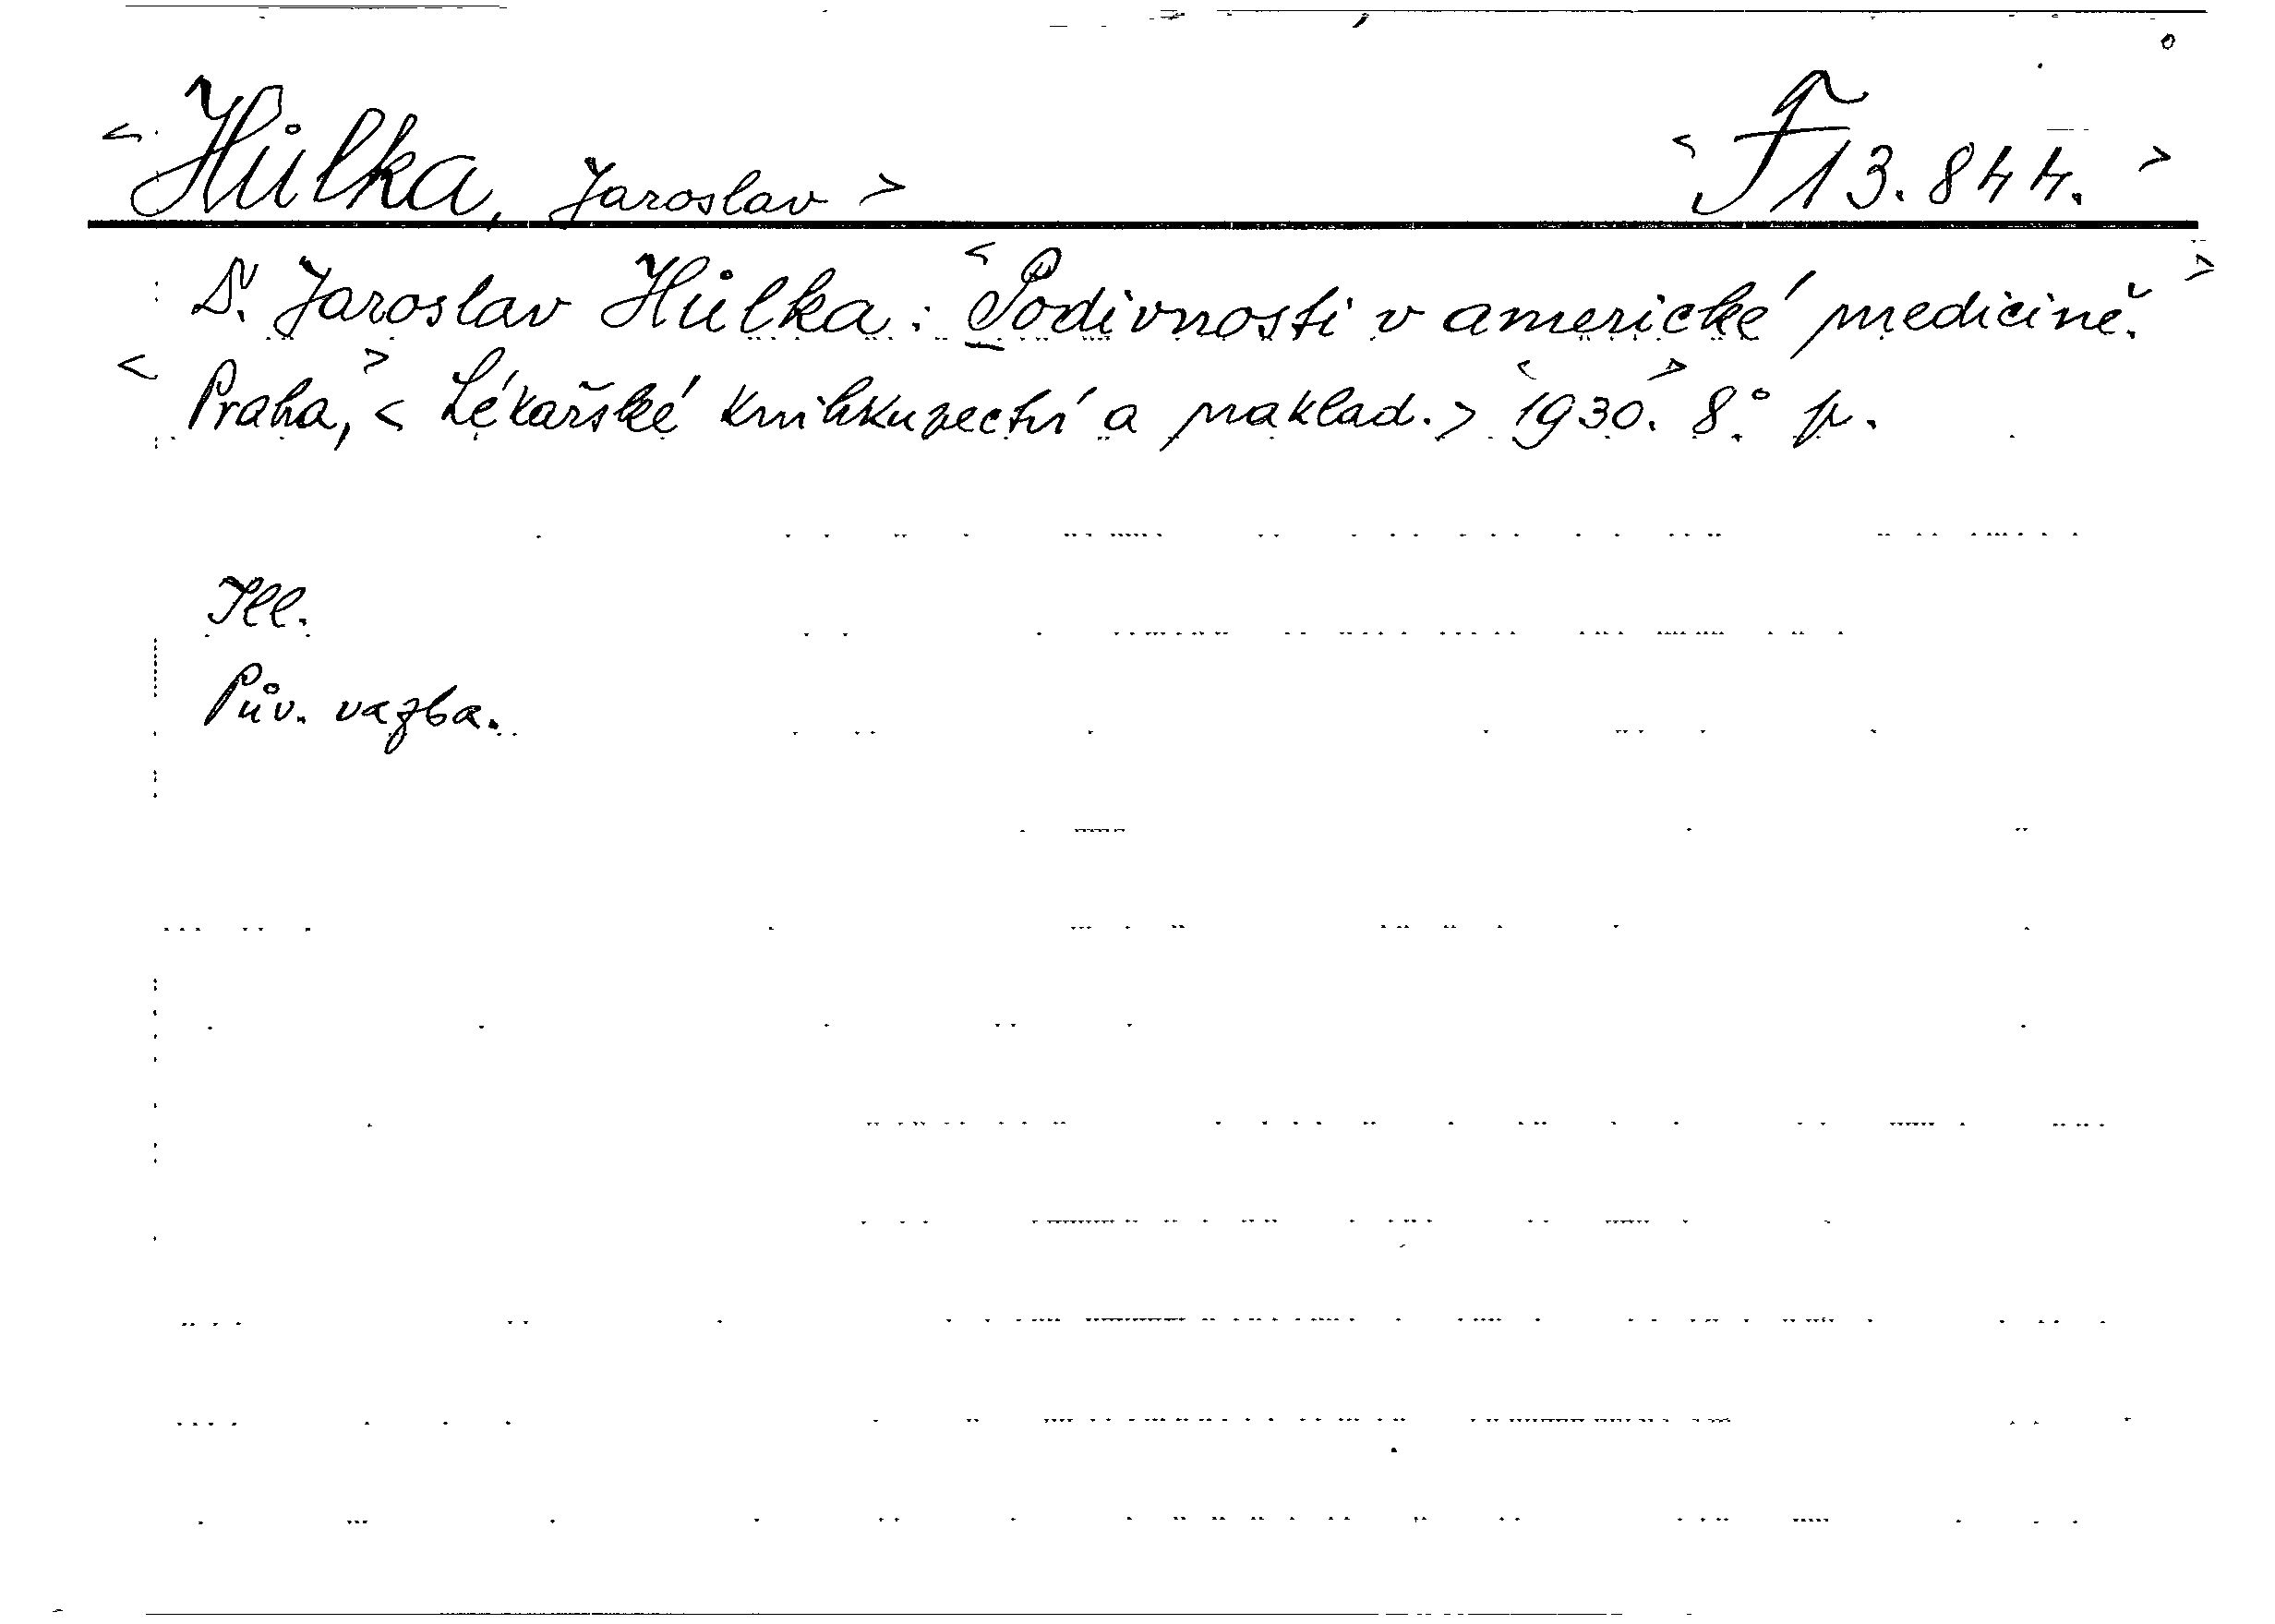 < Hůlka, Jaroslav > < F 13.844. >
D. Jaroslav Hůlka: < Podivnosti v americké medicině. >
< Praha, > < Lékařské knihkupectví a naklad. > < 1930. > 8° p.
Ill.
Pův. vazba.